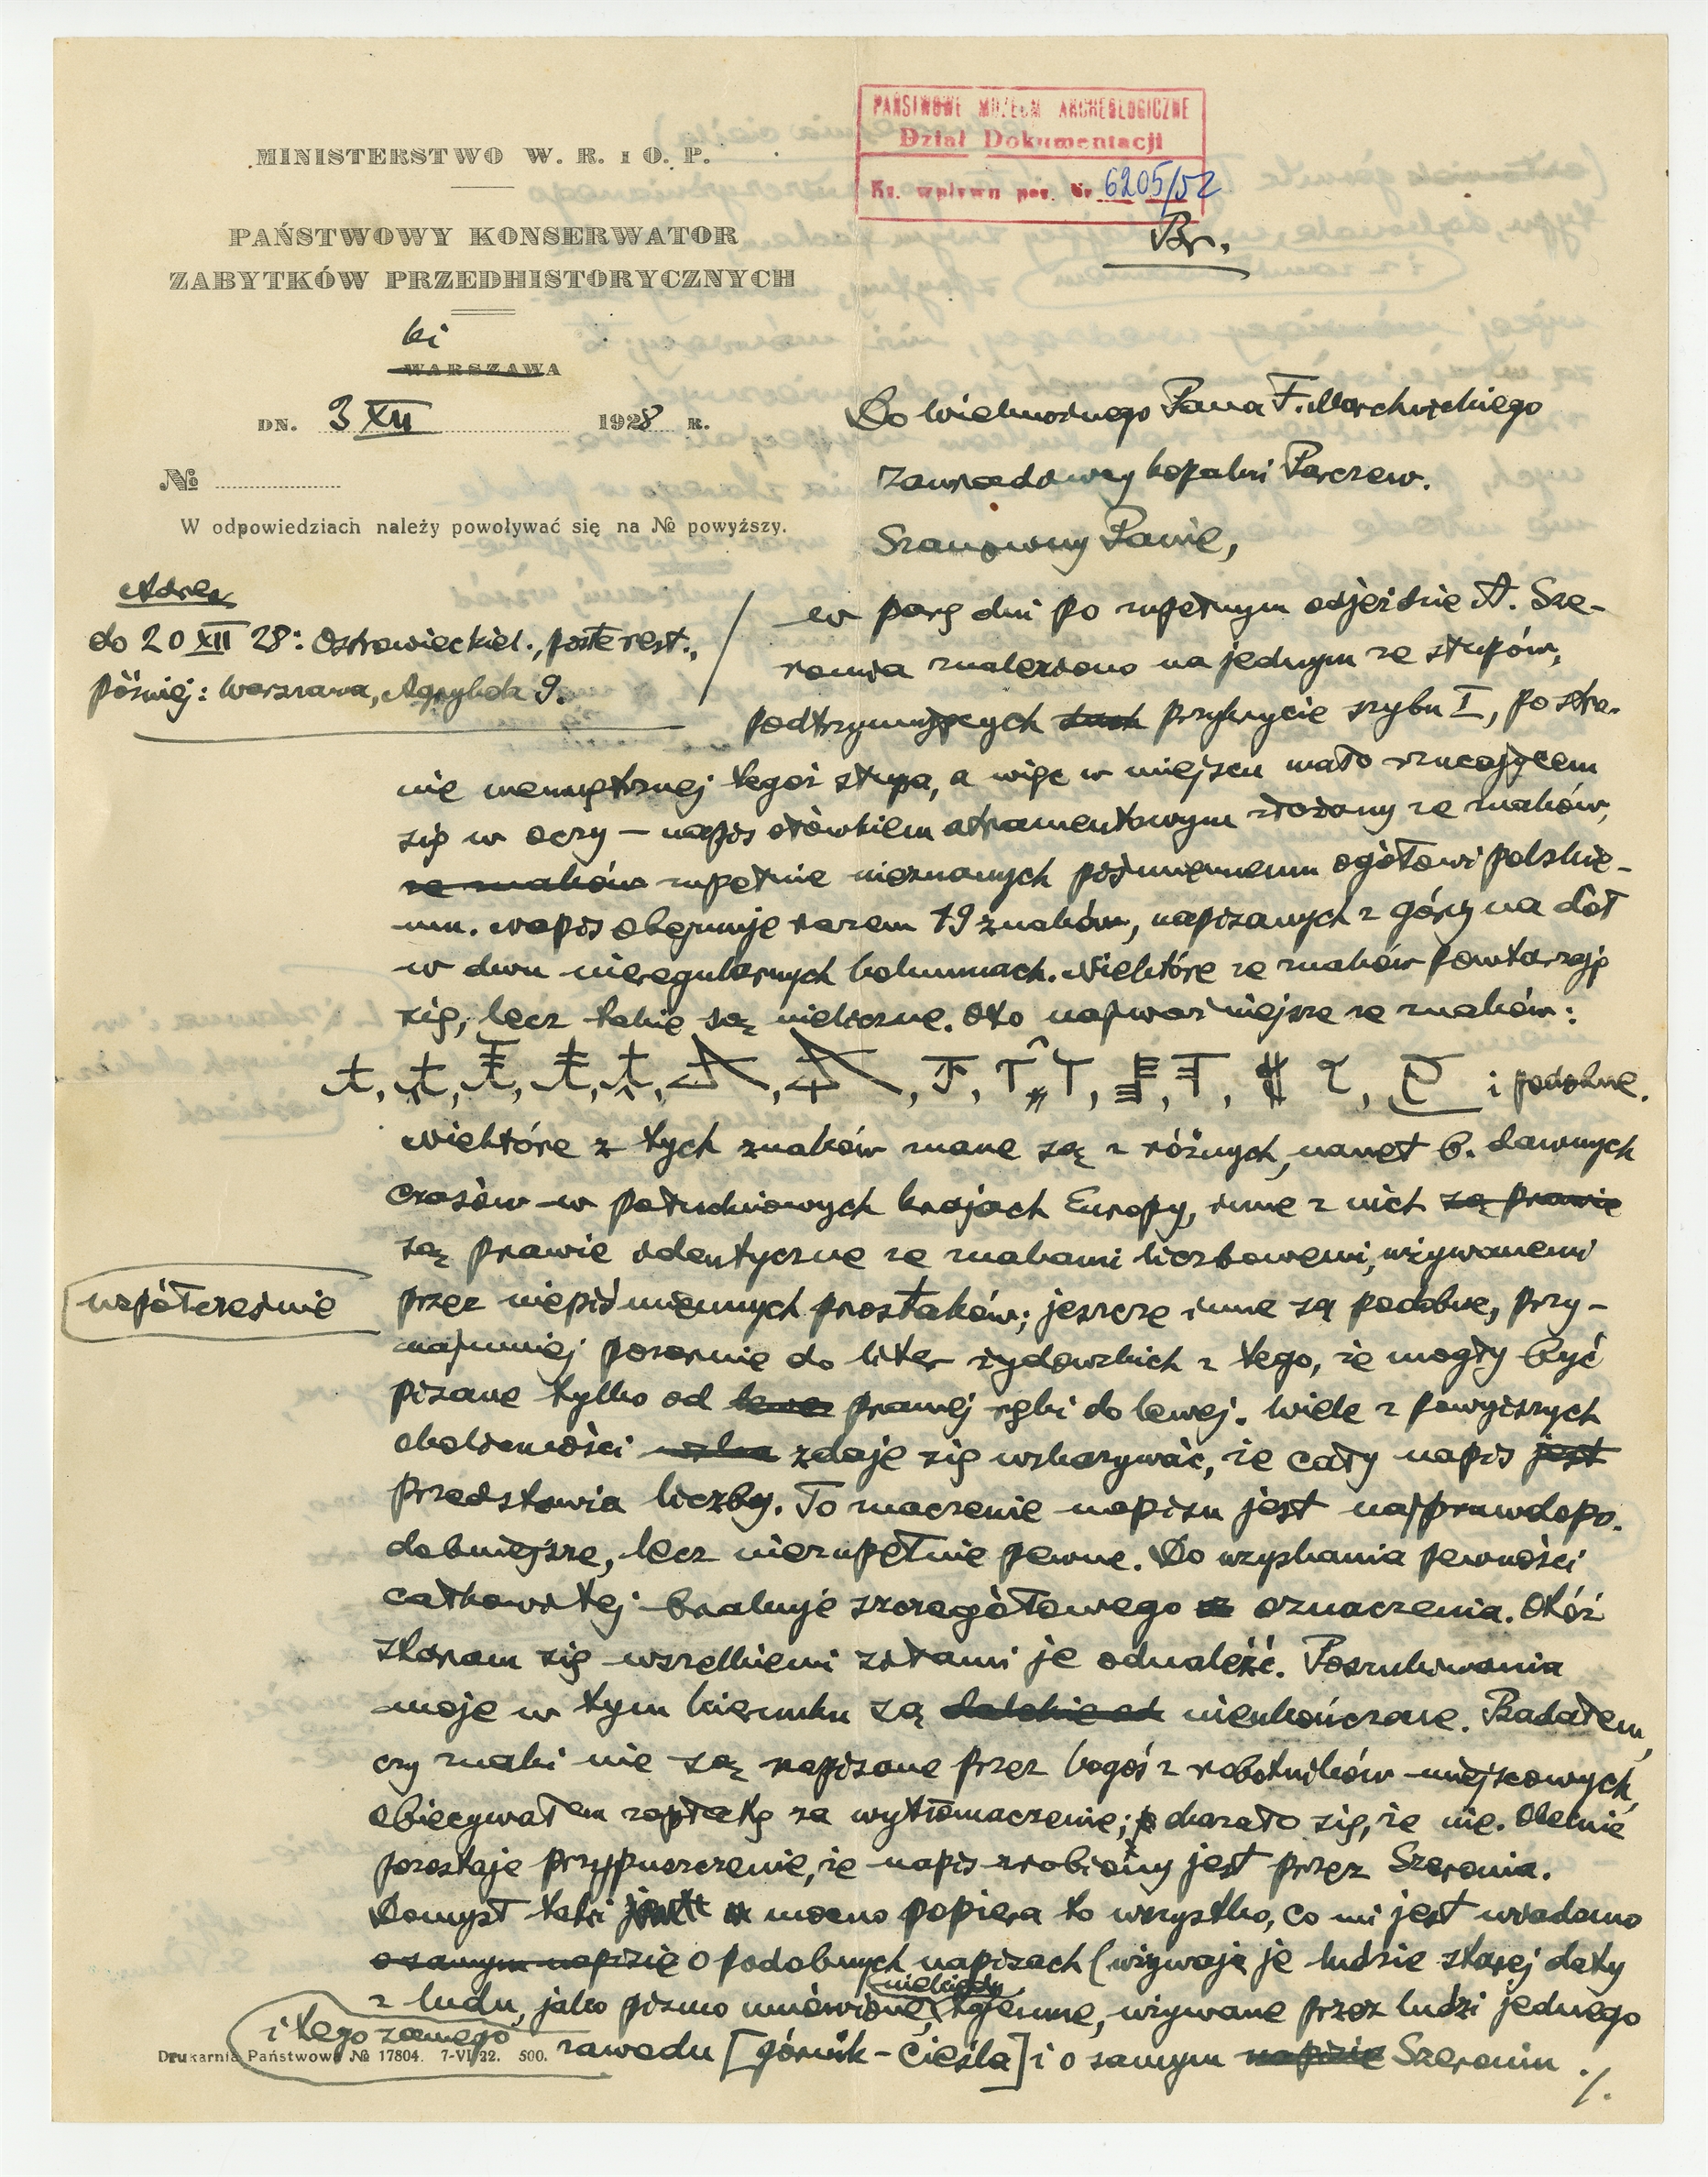 PAŃSTWOWE MUZEUM ARCHEOLOGICZNE
Dział Dokumentacji
Ks. wpływu poz. Nr 6205/52
Br.
MINISTERSTWO W. R. i O. P.
PAŃSTWOWY KONSERWATOR
ZABYTKÓW PRZEDHISTORYCZNYCH
ki
WARSZAWA
DN. 3 XII 1928 R.
№
W odpowiedziach należy powoływać się na № powyższy.
Adres
do 20 XII 28: Ostrowieckiel., poste rest.,
później: Warszawa, Agrykola 9.
Do Wielmożnego Pana F. Marchwickiego
Zawiadowcy kopalni Parczew.
Szanowny Panie,
w parę dni po zupełnym odjeździe A. Sze-
ronia znaleziono na jednym ze słupów,
podtrzymujących dach przykrycie szybu I, po stro-
nie wewnętrznej tegoż słupa, a więc w miejscu mało rzucającem
się w oczy – napis ołówkiem atramentowym złożony ze znaków,
ze znaków zupełnie nieznanych piśmiennemu ogółowi polskie-
mu. Napis obejmuje razem 19 znaków, napisanych z góry na dół
w dwu nieregularnych kolumnach. Niektóre ze znaków powtarzają
się, lecz takie są nieliczne. Oto najważniejsze ze znaków:
i podobne.
Niektóre z tych znaków znane są z różnych, nawet b. dawnych
czasów w południowych krajach Europy, inne z nich są prawie
są prawie identyczne ze znakami liczbowemi, używanemi
współcześnie
przez niepiśmiennych prostaków; jeszcze inne są podobne, przy-
najmniej pozornie do liter żydowskich z tego, że mogły być
pisane tylko od lewej prawej ręki do lewej. Wiele z powyższych
okoliczności wska zdaje się wskazywać, że cały napis jest
przedstawia liczby. To znaczenie napisu jest najprawdopo-
dobniejsze, lecz niezupełnie pewne. Do uzyskania pewności
całkowitej brakuje szczegółowego oznaczenia. Otóż
staram się wszelkiemi siłami je odnaleźć. Poszukiwania
moje w tym kierunku są dalekie od nieukończone. Badałem,
czy znaki nie są napisane przez kogoś z robotników miejscowych,
obiecywałem zapłatę za wytłomaczenie; okazało się, że nie. Obecnie
pozostaje przypuszczenie, że napis zrobiony jest przez Szeronia.
Domysł taki jest mocno popiera to wszystko, co mi jest wiadomo
o samym napisie o podobnych napisach (używają je ludzie starej daty
z ludu, jako pismo umówione, niekiedy tajemne, używane przez ludzi jednego
i tego samego
zawodu [górnik – cieśla] i o samym napisie Szeroniu ./.
Drukarnia Państwowa № 17804. 7-VI 22. 500.